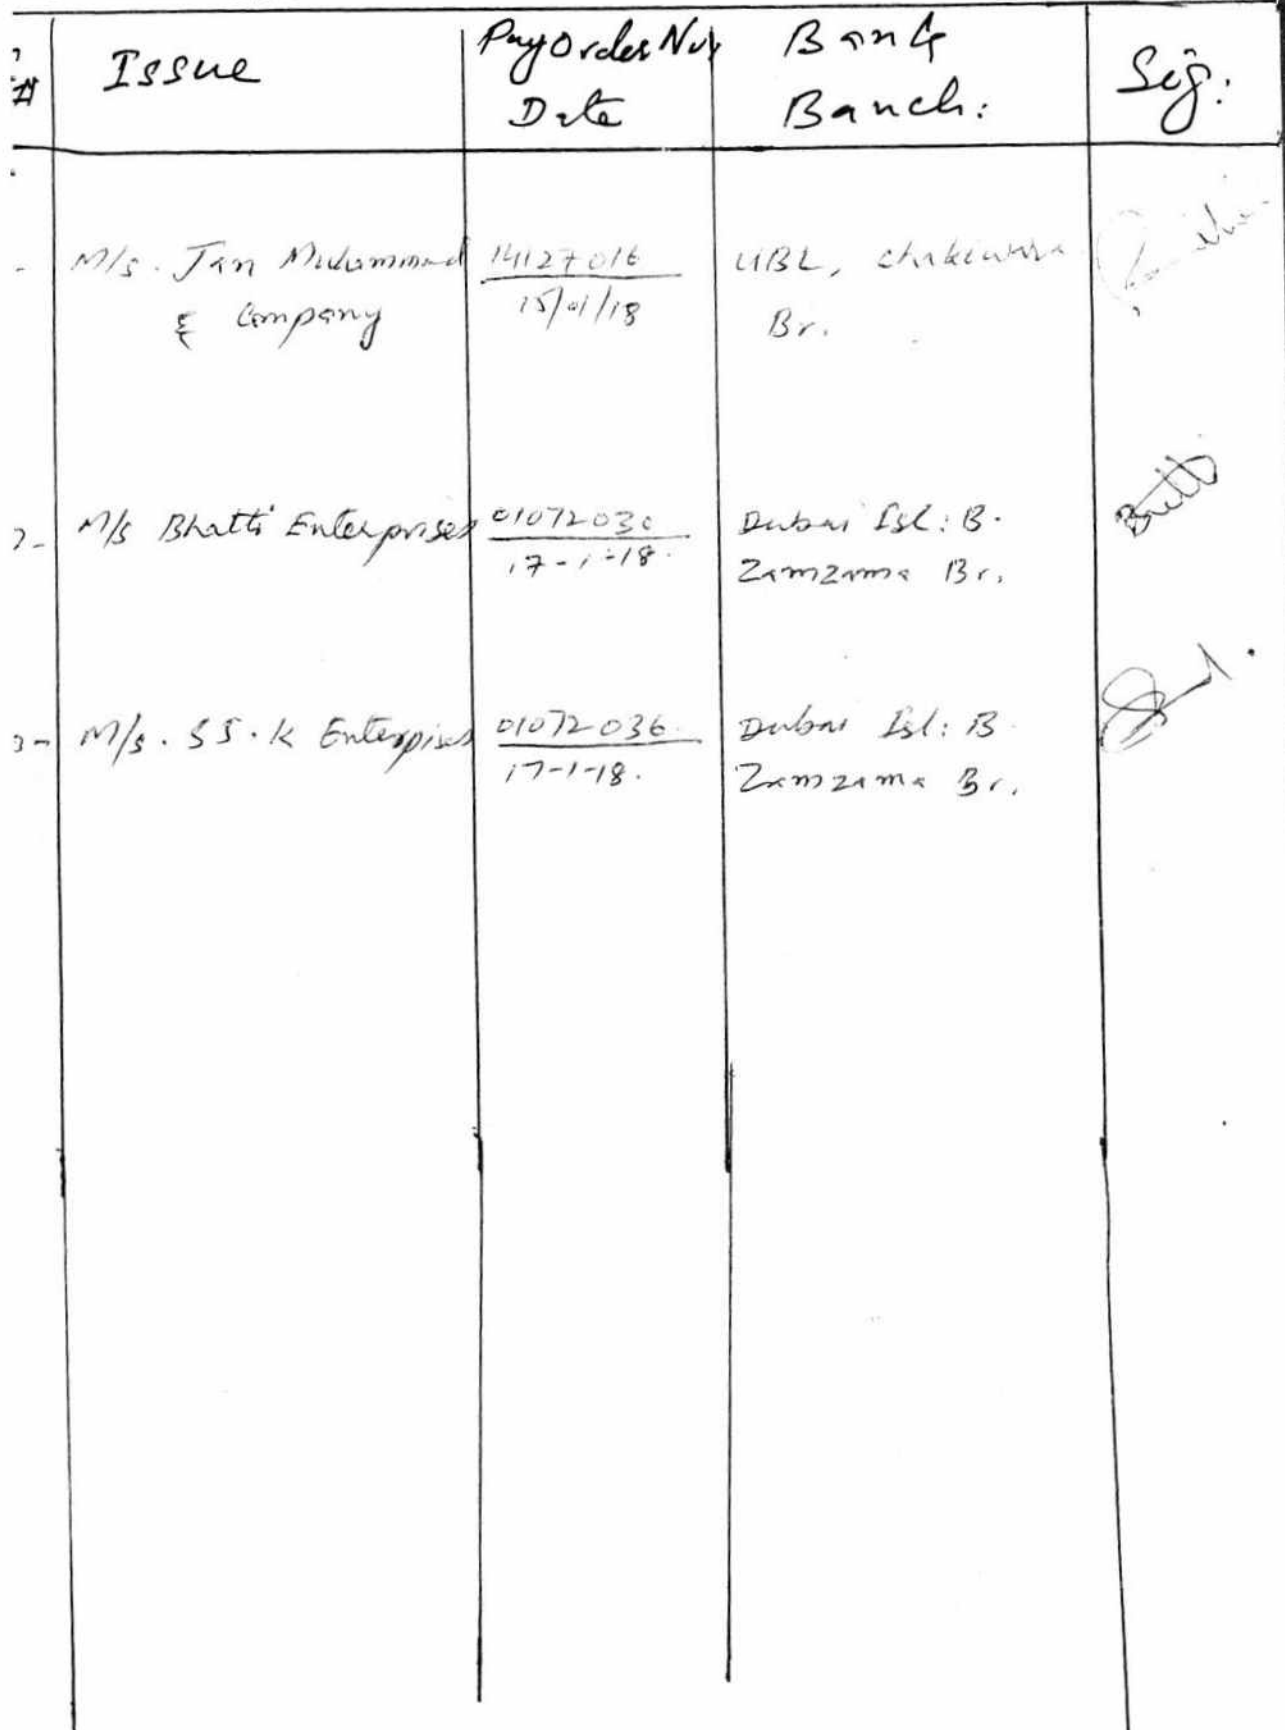 #
Issue
Pay Order No/
Date
Bank
Banch:
Sig:
M/s. Jan Muhammad
& Company
14127016
15/01/18
UBL, Chakiwara
Br.
2-
M/s Bhatti Enterprises
01072030
17-1-18.
Dubai Isl: B.
Zamzama Br.
3-
M/s. SS.K Enterpises
01072036.
17-1-18.
Dubai Isl: B.
Zamzama Br.